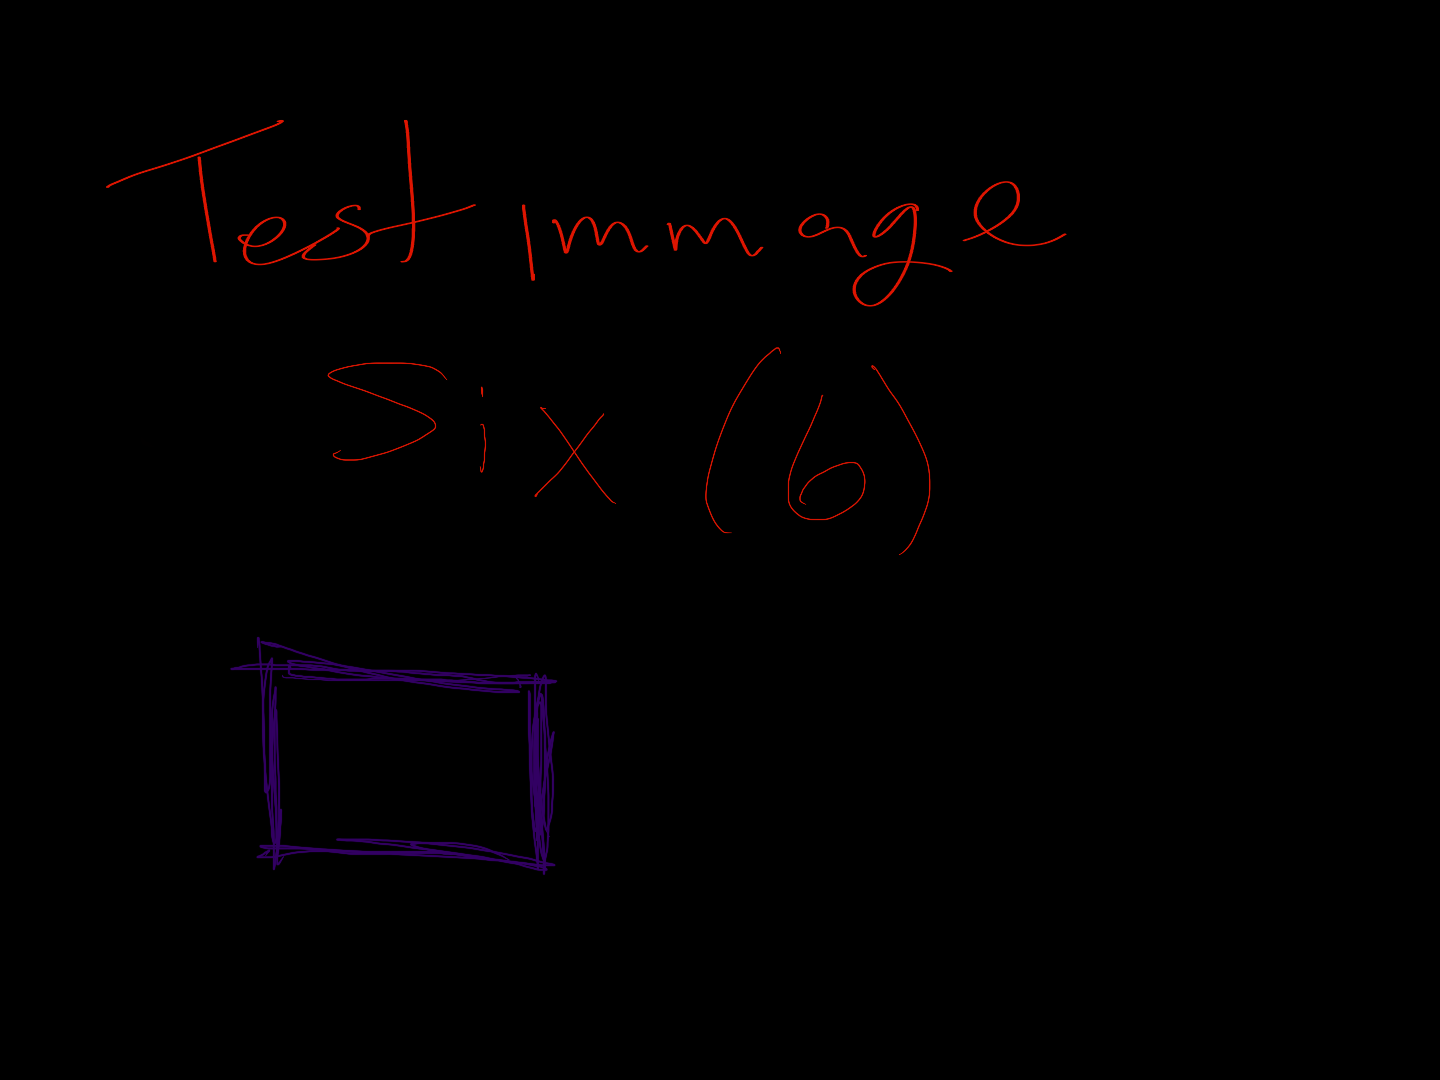 Test immage
Six (6)